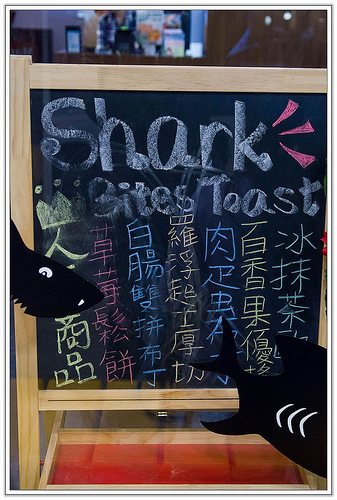 Shark
Bites Toast
人 商品
草莓鬆餅
白腸雙拼布丁
羅浮起士厚切
肉
百香果優
冰抹茶